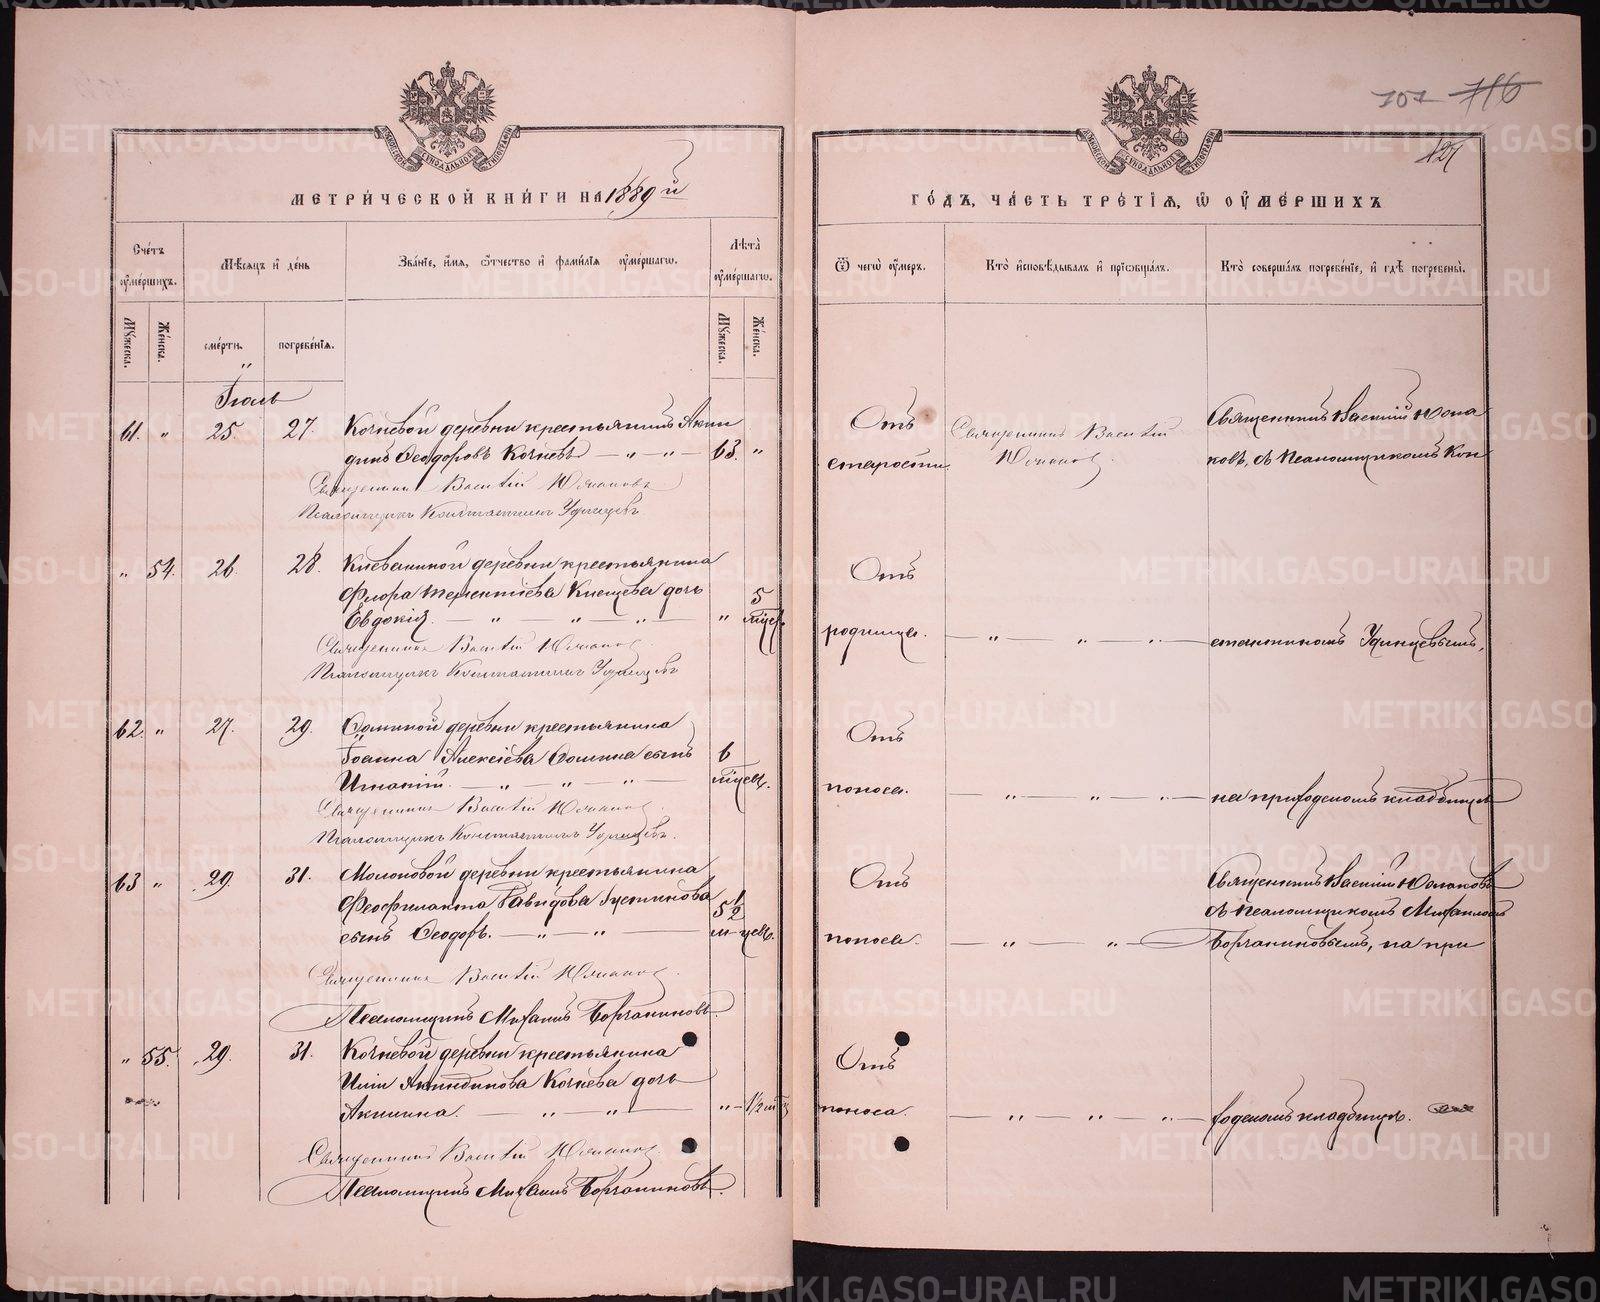 707 716
121
МЕТРИ́ЧЕСКОЙ КНИ́ГИ НА 1889й
ГО́ДЪ, ЧА́СТЬ ТРЕ́ТІѦ, Ѡ҆ ОУ҆МЕ́РШИХЪ
Сче́тъ оу҆ме́ршихъ.
Мꙋ́жеска.
Же́нска.
Мѣ́сѧцъ и҆ де́нь
сме́рти.
погребе́нїѧ.
Зва́нїе, и҆́мѧ, ѻ҆́тчество и҆ фами́лїѧ оу҆ме́ршагѡ.
Лѣ́та оу҆ме́ршагѡ.
Мꙋ́жеска.
Же́нска.
Ѿ чегѡ̀ оу҆́меръ.
Кто̀ и҆сповѣ́дывалъ и҆ прїѡбща́лъ.
Кто̀ соверша́лъ погребе́нїе, и҆ гдѣ̀ погребены̀.
Іюль
61. " 25 27. Кочневой деревни крестьянинъ Акин
динъ Ѳеодоровъ Кочневъ — " — " — 63. "
Священникъ Василій Юмановъ
Псаломщикъ Константинъ Удинцевъ
Отъ
старости.
Священникъ Василій
Юмановъ
Священникъ Василій Юма
новъ, съ Псаломщикомъ Кон
" 54. 26 28. деревни крестьянина
Флора Терентіева дочь 5
Евдокія. — " — " — " — " мѣсяц.
Священникъ Василій Юмановъ
Псаломщикъ Константинъ Удинцевъ
Отъ
родимца. — " — " — " —
стантиномъ Удинцевымъ,
62. " 27. 29. Ѳоминой деревни крестьянина
Іоанна Алексіева Ѳомина сынъ 6
Игнатій. — " — " — " мѣсяц.
Священникъ Василій Юмановъ
Псаломщикъ Константинъ Удинцевъ.
Отъ
поноса. — " — " — " —
на приходскомъ кладбищѣ
63 " 29. 31. Молоковой деревни крестьянина
Феофилакта Давидова Густинова 5½
сынъ Ѳеодоръ. — " — " — м-цевъ.
Священникъ Василій Юмановъ.
Псаломщикъ Михаилъ Борчаниновъ.
Отъ
поноса. — " — " —
Священникъ Василій Юмановъ
съ Псаломщикомъ Михаиломъ
Борчаниновымъ, на при
" 55. 29. 31. Кочневой деревни крестьянина
Иліи Акиндинова Кочнева дочь
Акилина. — " — " — " — 1½ м-ца
Священникъ Василій Юмановъ.
Псаломщикъ Михаилъ Борчаниновъ.
Отъ
поноса. — " — " — " —
ходскомъ кладбищѣ.
METRIKI.GASO-URAL.RU